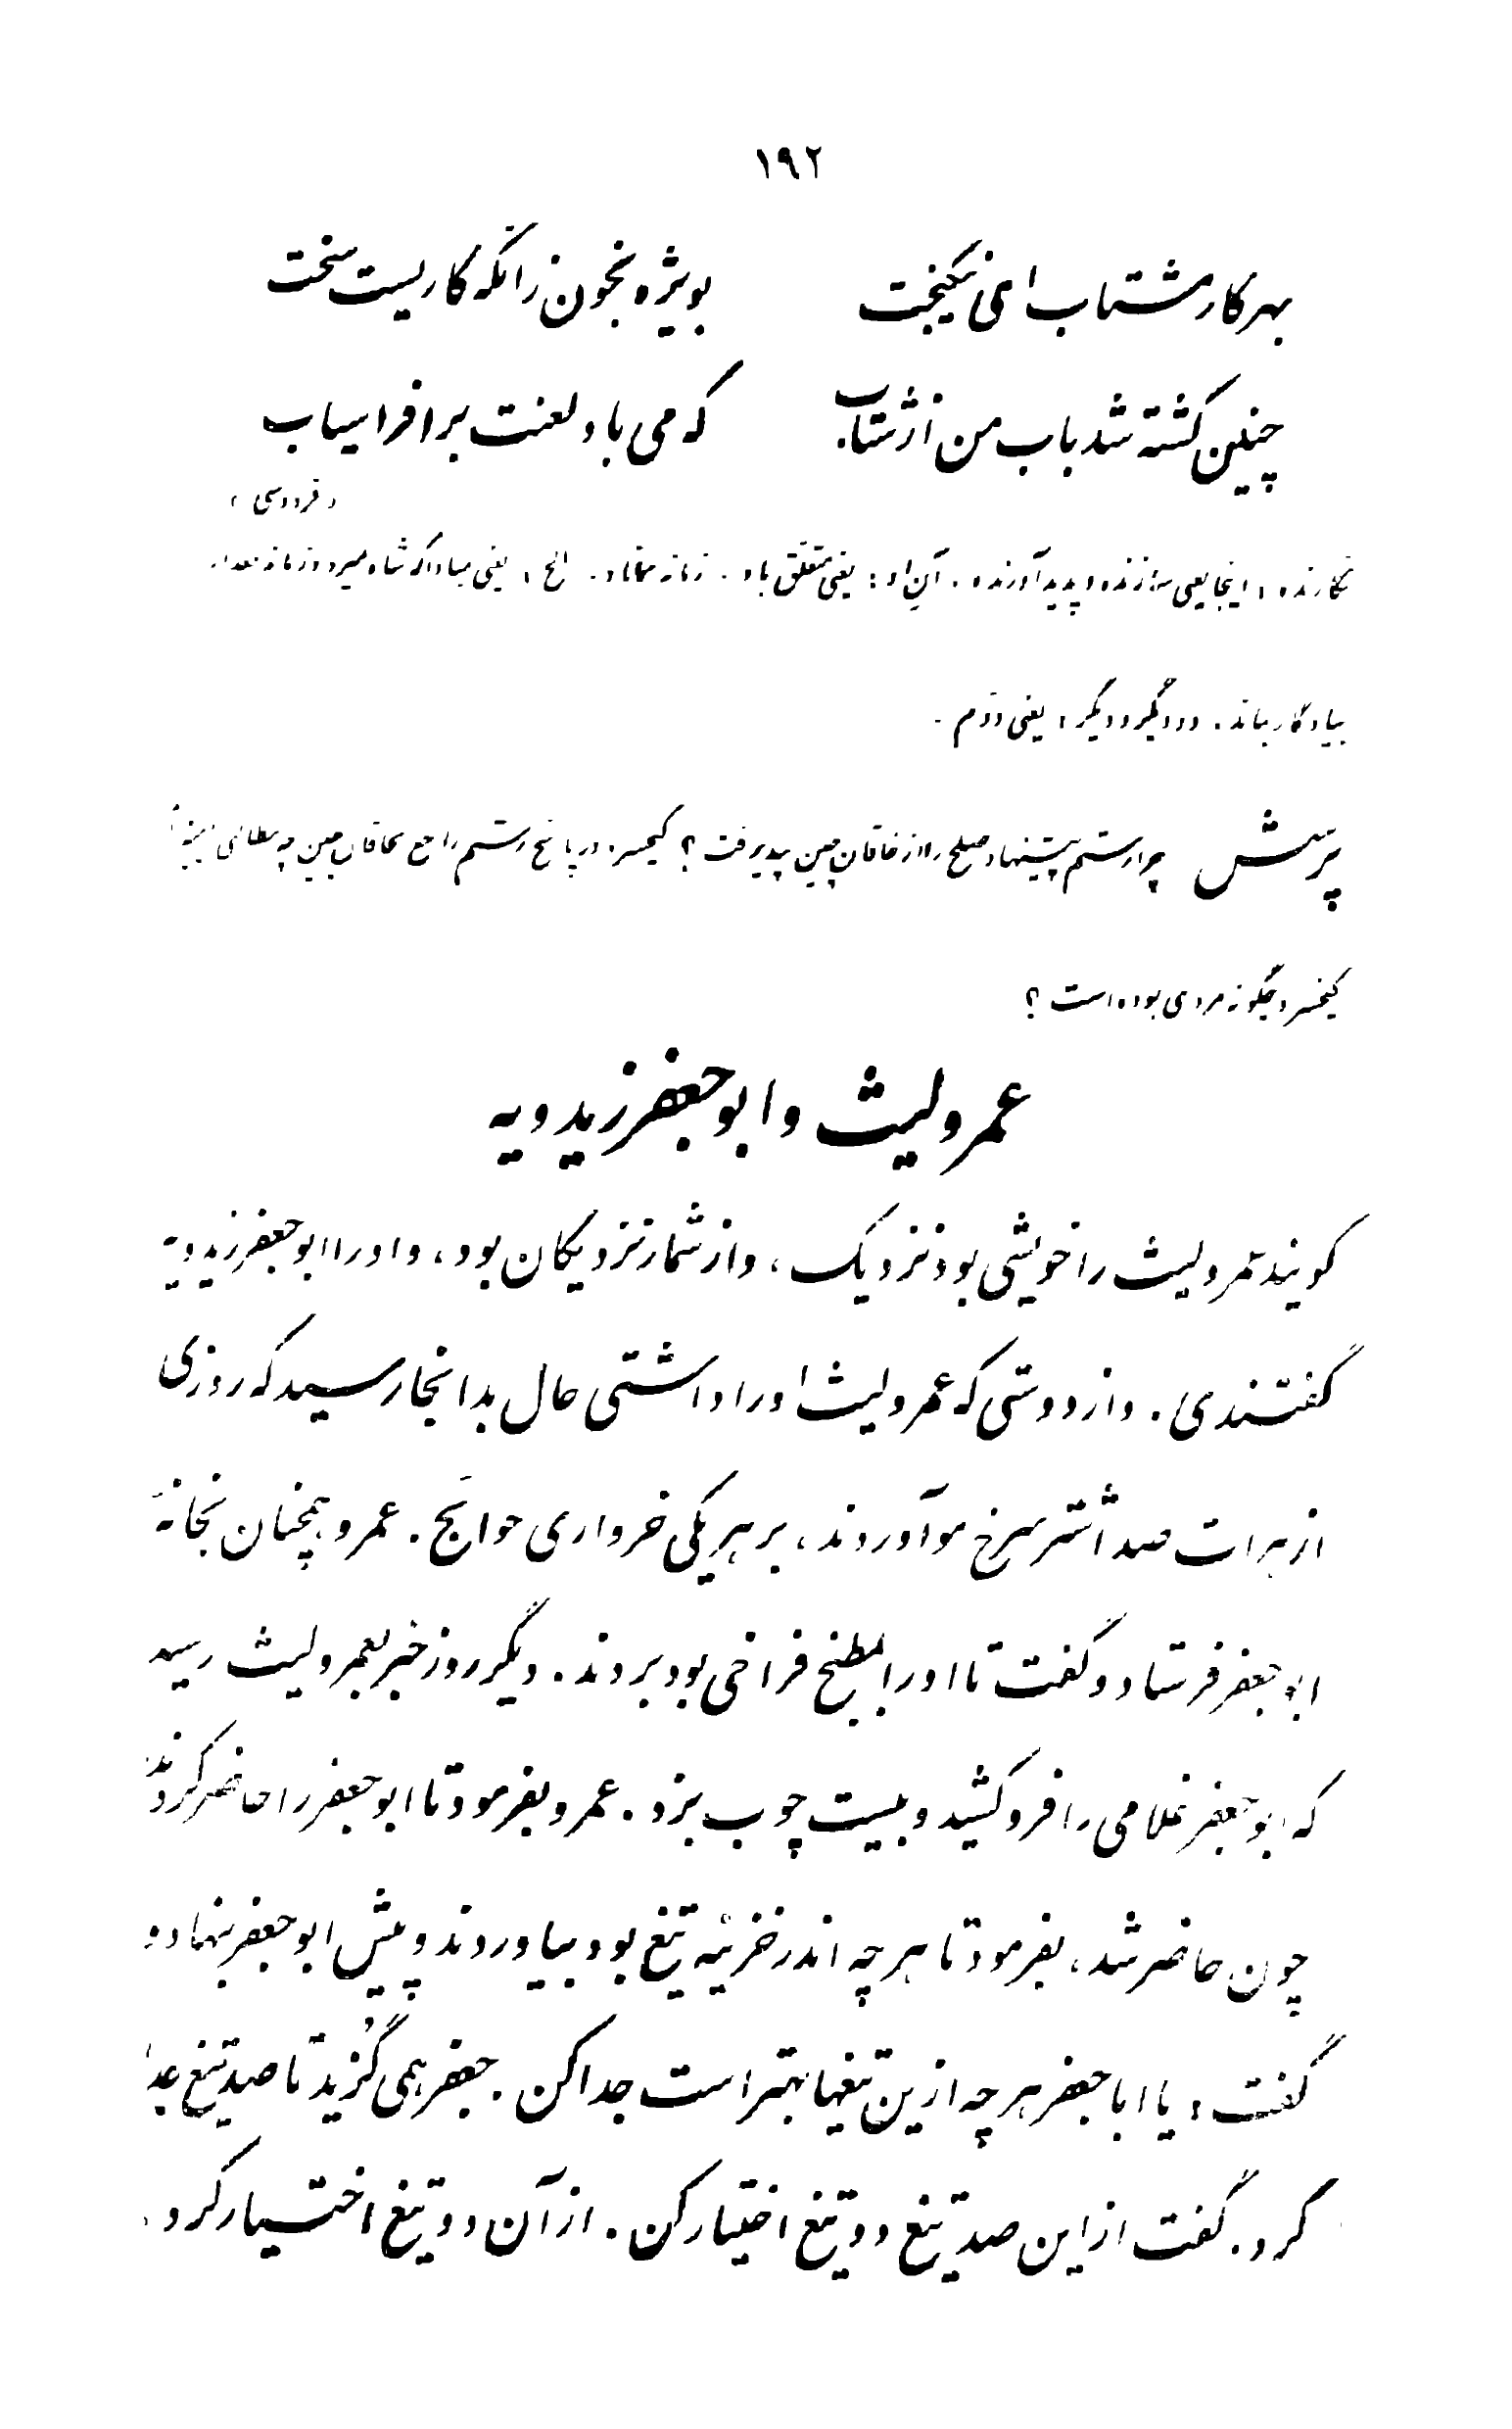 ۱۹۲
بهر کار مشتاب ای نیکبخت بویژه بخون زانکه کاریست سخت
چنین کشته شد باب من از شتاب که می باد لعنت بر افراسیاب
(فردوسی)
نگارنده، اینجا یعنی سازنده و پدید آورنده. آنِ او: یعنی متعلّق باد. زمانه مماناد. الخ، یعنی مبادا که شاه بمیرد و زمانه بعد از
بیادگار بماند. دو دیگر و دیگر، یعنی دوّم.
پرسش چرا رستم پیشنهاد صلح را از خاقان چین پذیرفت؟ کیخسرو در پاسخ رستم راجع بخاقان چین چه مطالبی
کیخسرو چگونه مردی بوده است؟
عمرو لیث و ابو جعفر زیدویه
گویند عمرو لیث را خویشی بود نزدیک، و از شمار نزدیکان بود، و او را ابو جعفر زیدویه
گفتندی. و از دوستی که عمرو لیث او را داشتی حال بدانجا رسید که روزی
از هرات صد اشتر سرخ مو آوردند، بر هر یکی خرواری حوایج. عمرو همچنان بخانهٔ
ابو جعفر فرستاد و گفت تا او را مطبخ فراخی بود بردند. دیگر روز خبر بعمرو لیث رسید
که ابو جعفر غلامی را فرو کشید و بیست چوب بزد. عمرو بفرمود تا ابو جعفر را حاضر کردند
چون حاضر شد، بفرمود تا هر چه اندر خزینه تیغ بود بیاوردند و پیش ابو جعفر بنهاد و
گفت: یا ابا جعفر هر چه ازین تیغها بهتر است جدا کن. جعفر همی گُزید تا صد تیغ جدا
کرد. گفت از این صد تیغ دو تیغ اختیار کن. از آن دو تیغ اختیار کرد.